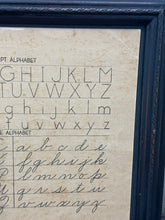 PT ALPHABET
G H I J K L M
T U V W X Y Z
g h i j k l m
t u v w x y z
E ALPHABET
a b c d e
f g h i j k
l m n o p
q r s t u
v w x y z